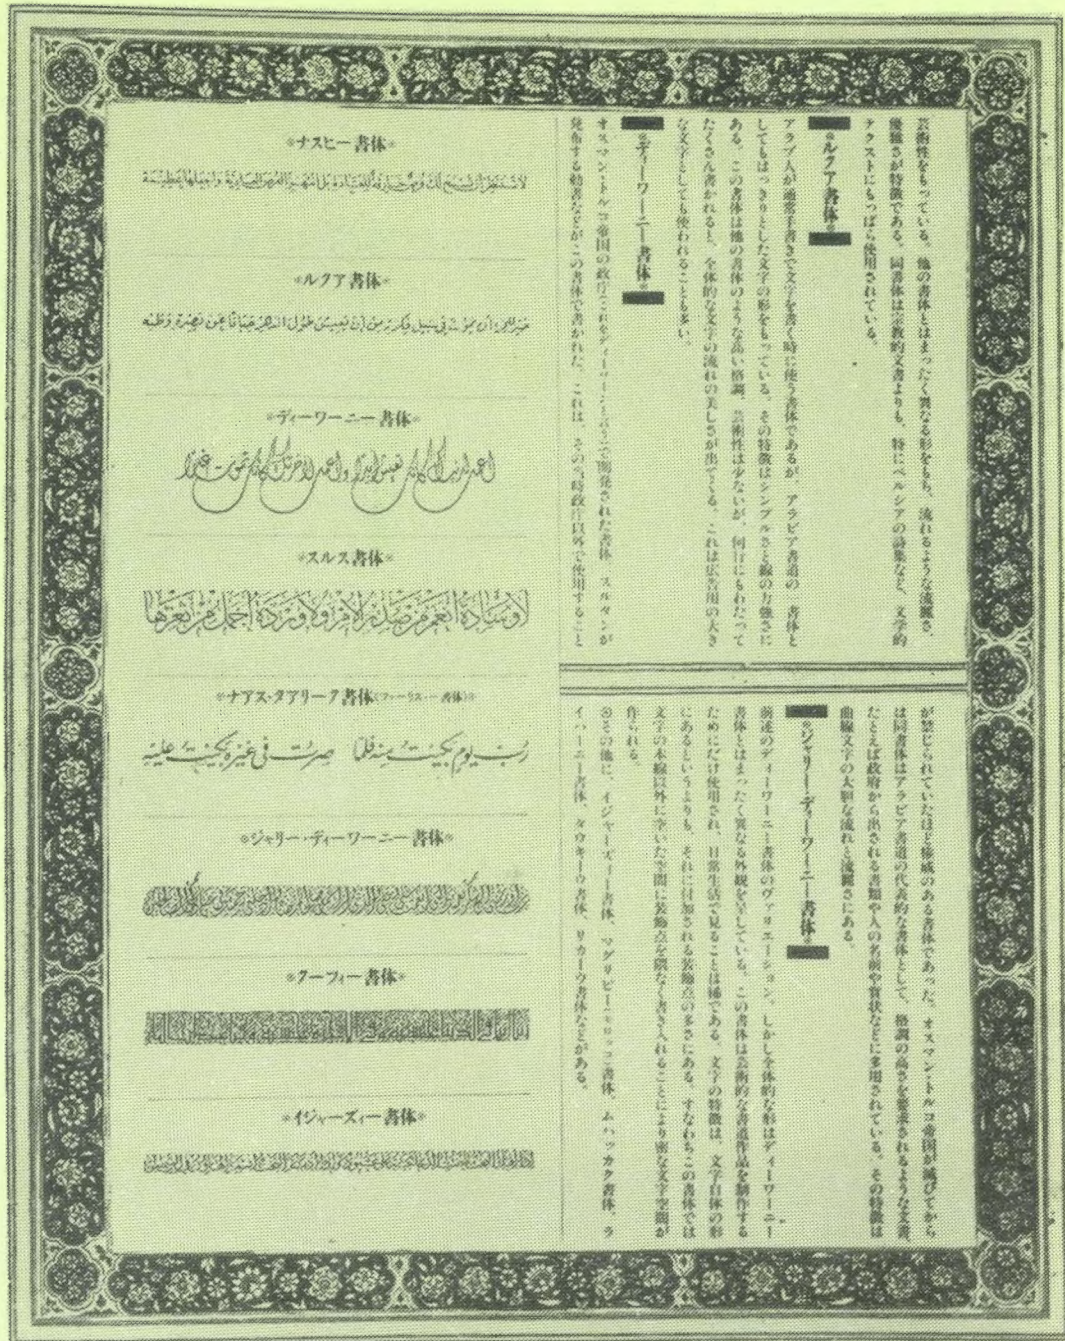 芸術性をもっている。他の書体とはまったく異なる形をもち、流れるような流麗さ、
優雅さが特徴である。同書体は宗教的文書よりも、特にペルシアの詩集など、文学的
テクストにもっぱら使用されている。
*ルクア書体*
アラブ人が通常手書きで文字を書く時に使う書体であるが、アラビア書道の一書体と
してもはっきりとした文字の形をもっている。その特徴はシンプルさと線の力強さに
ある。この書体は他の書体のような高い格調、芸術性は少ないが、何行にもわたって
たくさん書かれると、全体的な文字の流れの美しさが出てくる。これは広告用の大き
な文字としても使われることも多い。
*ディーワーニー書体*
オスマン・トルコ帝国の政庁(これをディーワーンと言う)で開発された書体。スルタンが
発布する勅書などがこの書体で書かれた。これは、その当時政庁以外で使用すること
が禁じられていたほど権威のある書体であった。オスマン・トルコ帝国が滅びてから
は同書体はアラビア書道の代表的な書体として、格調の高さを要求されるような文書、
たとえば政府から出される書類や人の名前や賞状などに多用されている。その特徴は
曲線文字の大胆な流れと流麗さにある。
*ジャリー・ディーワーニー書体*
前述のディーワーニー書体のヴァリエーション。しかし全体的な形はディーワーニー
書体とはまったく異なる外観を呈している。この書体は芸術的な書道作品を制作する
ためにだけ使用され、日常生活で見ることは稀である。文字の特徴は、文字自体の形
にあるというよりも、それに付加される装飾点の多さにある。すなわちこの書体では
文字の本線以外に空いた空間に装飾点を隙なく書き入れることにより密な文字空間が
作られる。
◎その他に、イジャーズィー書体、マグリビー(モロッコ)書体、ムハッカク書体、ラ
イハーニー書体、タウキーウ書体、リカーウ書体などがある。
*ナスヒー書体*
*ルクア書体*
*ディーワーニー書体*
*スルス書体*
*ナアス・タアリーク書体(ファーリスィー書体)*
رب يوم بكيت منه فلما صرت في غيره بكيت عليه
*ジャリー・ディーワーニー書体*
*クーフィー書体*
*イジャーズィー書体*